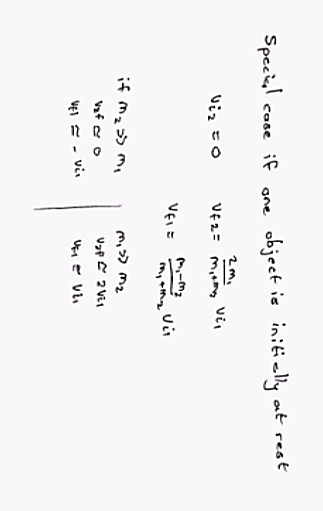 Special case if one object is initially at rest
Vi₂ = 0    Vf2 = 2m₁/(m₁+m₂) Vi₁
Vf1 = (m₁-m₂)/(m₁+m₂) Vi₁
if m₂ >> m₁ | m₁ >> m₂
V₂f ≅ 0 | V₂f ≅ 2Vi₁
Vf1 ≅ - Vi₁ | Vf1 ≅ Vi₁